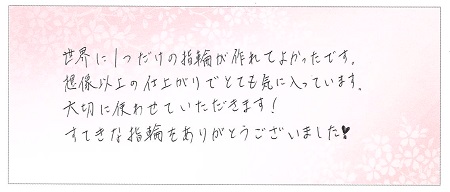 世界に1つだけの指輪が作れてよかったです。
想像以上の仕上がりでとても気に入っています。
大切に使わせていただきます！
すてきな指輪をありがとうございました♥